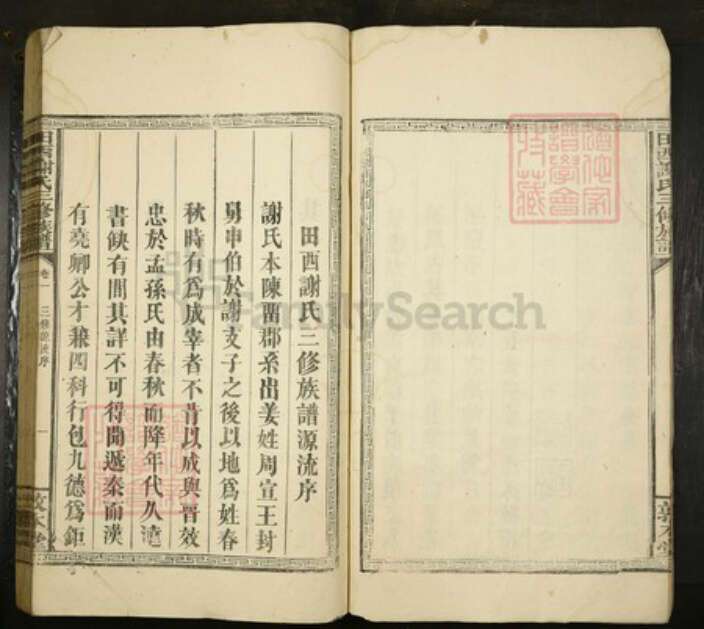 田西謝氏三修族譜
敦本堂
田西謝氏三修族譜源流序
謝氏本陳留郡系出姜姓周宣王封
舅申伯於謝支子之後以地為姓春
秋時有為成宰者不肯以成與晉效
忠於孟孫氏由春秋而降年代久遠
書缺有間其詳不可得聞遞秦而漢
有堯卿公才兼四科行包九德為鉅
田西謝氏三修族譜
卷一
三修源流序
一
敦本堂
FamilySearch